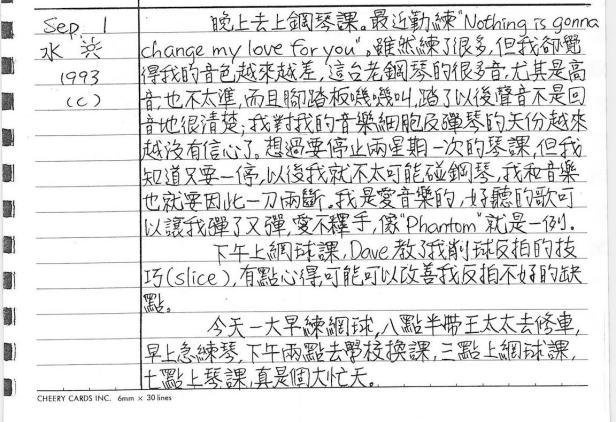 Sep. 1
水
1993
(C)
晚上去上鋼琴課。最近勤練"Nothing is gonna
change my love for you",雖然練了很多,但我卻覺
得我的音色越來越差,這台老鋼琴的很多音,尤其是高
音,也不太準,而且腳踏板嘰嘰叫,踏了以後聲音不是回
音地很清楚;我對我的音樂細胞及彈琴的天份越來
越沒有信心了。想過要停止兩星期一次的琴課,但我
知道又要一停,以後我就不太可能碰鋼琴,我和音樂
也就要因此一刀兩斷。我是愛音樂的,好聽的歌可
以讓我彈了又彈,愛不釋手,像"Phantom"就是一例。
下午上網球課,Dave教了我削球反拍的技
巧(slice),有點心得,可能可以改善我反拍不好的缺
點。
今天一大早練網球,八點半帶王太太去修車,
早上急練琴,下午兩點去學校換課,三點上網球課,
七點上琴課,真是個大忙天。
CHEERY CARDS INC. 6mm × 30 lines